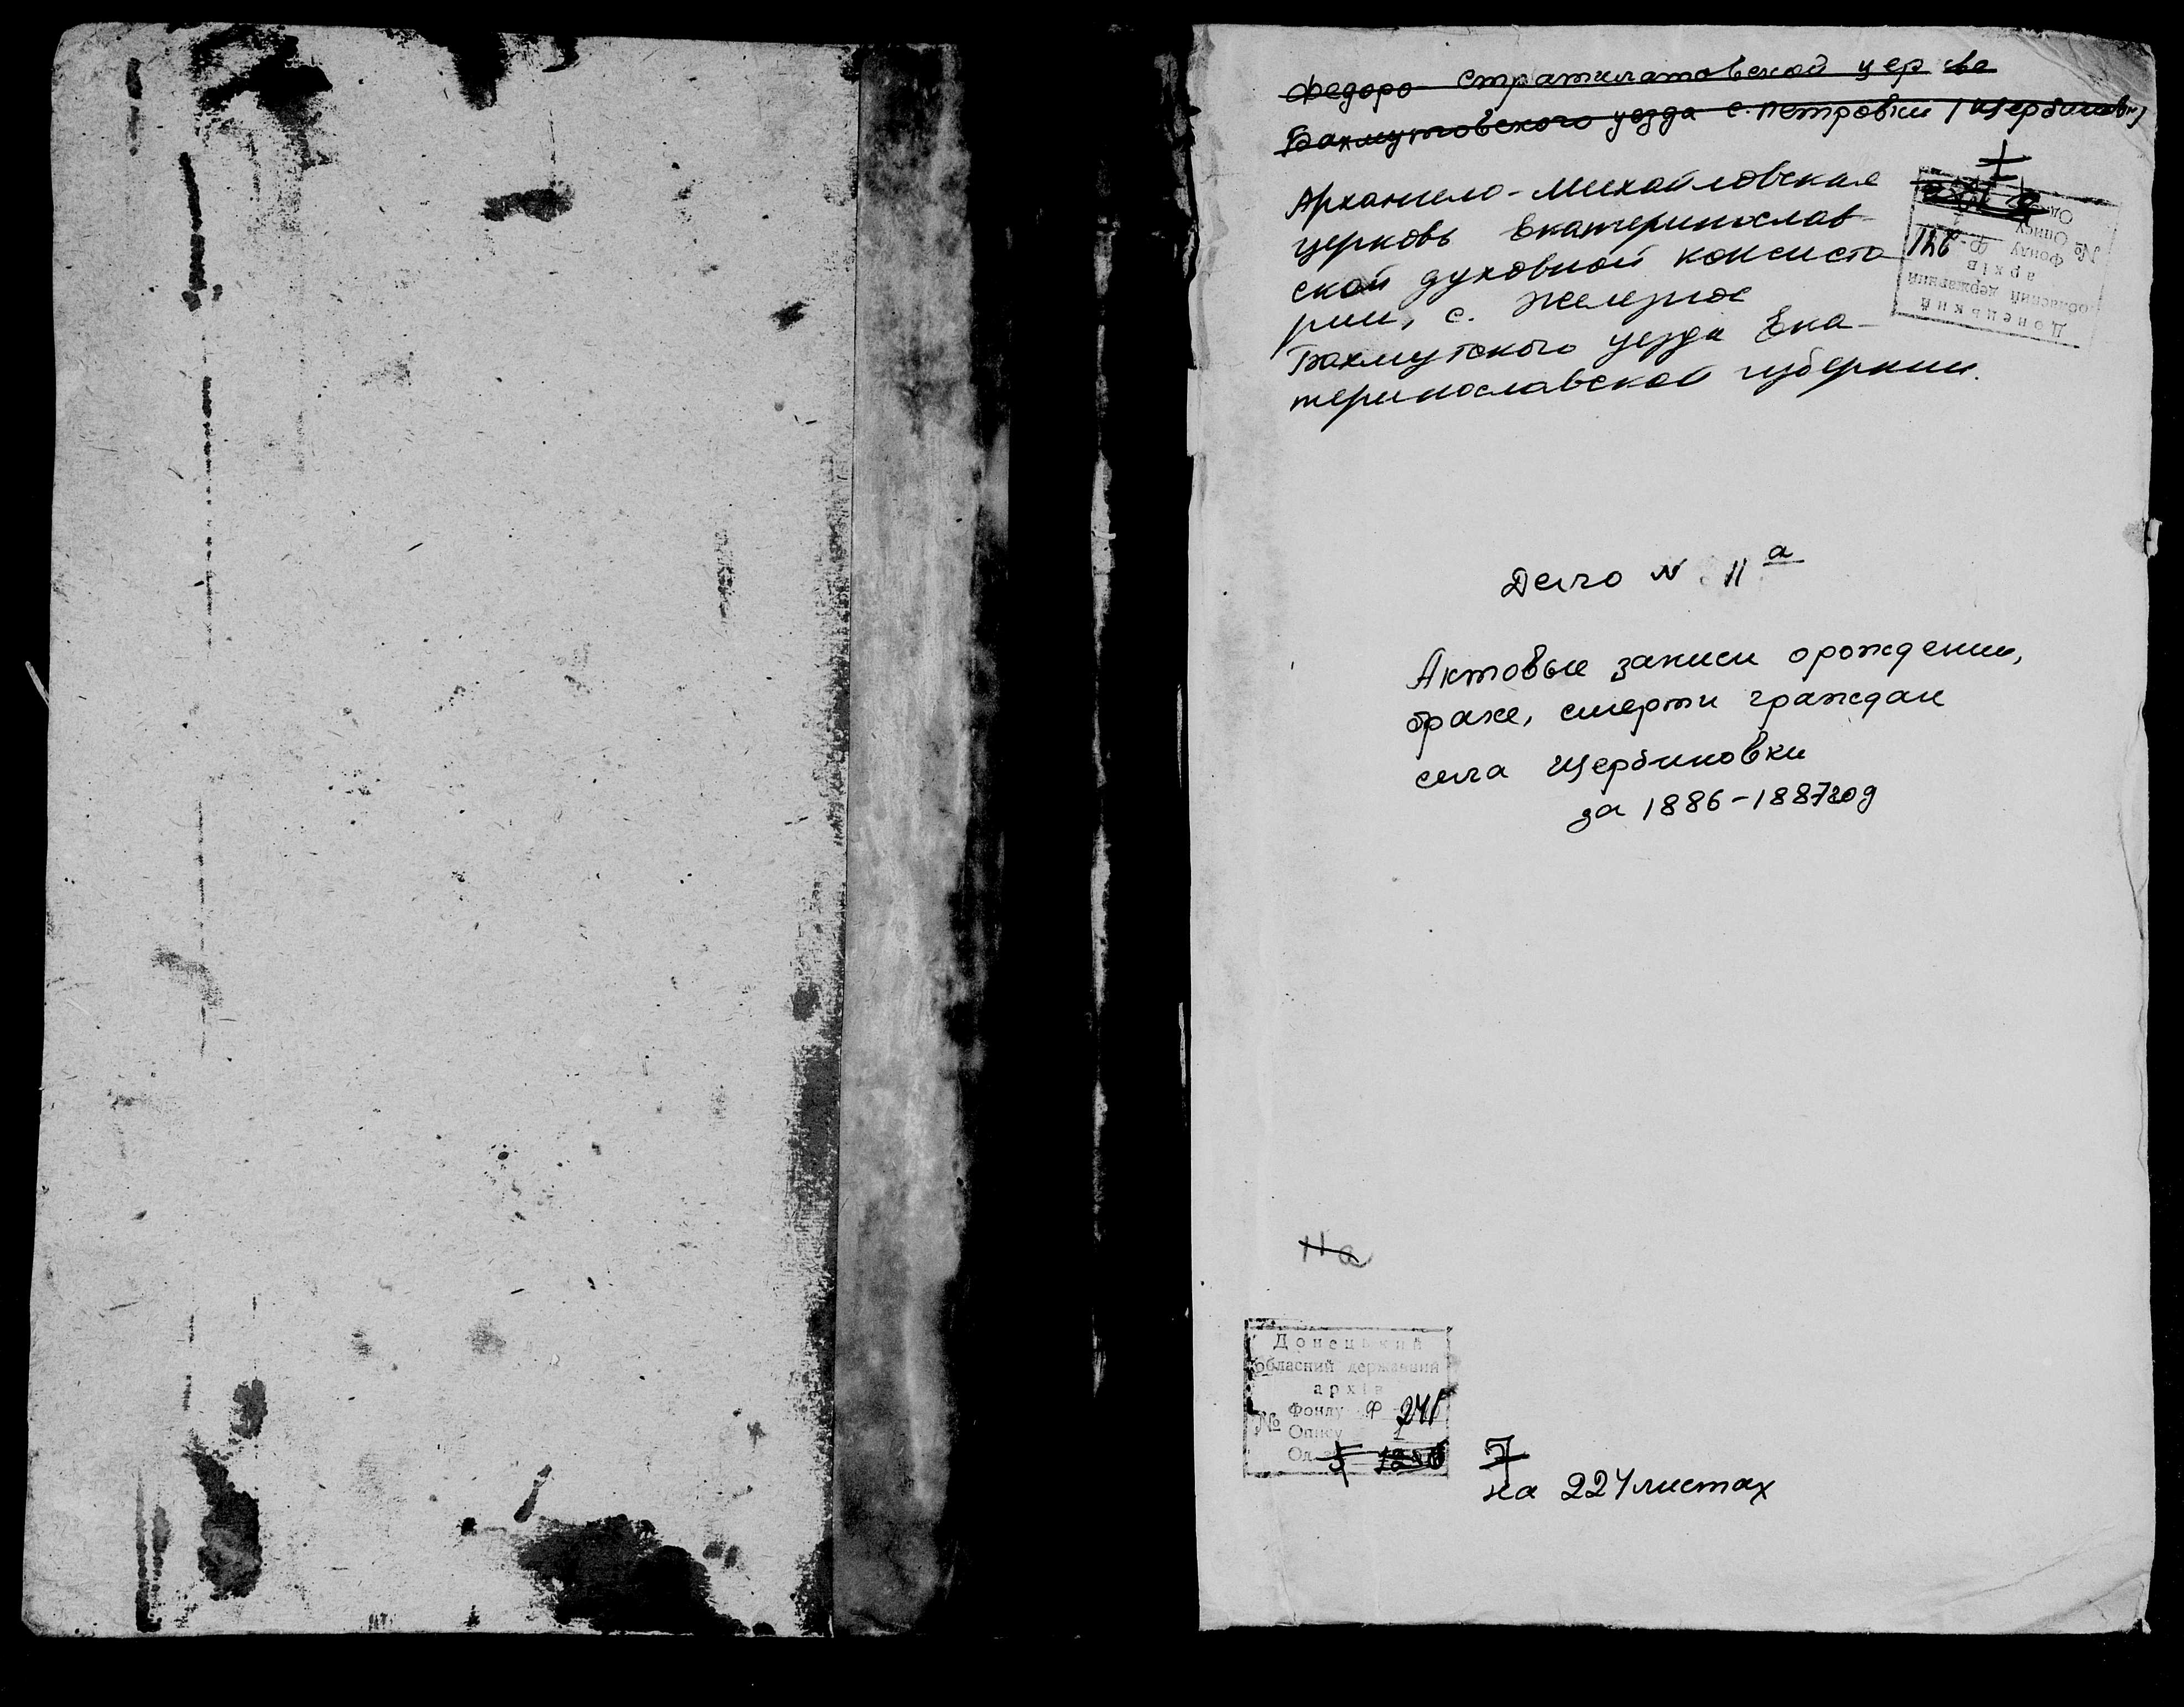 Федоро-Стратилатовской церкве
Бахмутовского уезда с. Петровки (Щербиновк)
Архангело-Михайловская
церковь Екатеринослав
ской духовной консисто
рии, с. Железное
Бахмутского уезда Ека-
теринославской губернии.
Донецький
обласний державний
архів
№ Фонду Ф-241
Опису
Од.
Дело N 11а
Актовые записи о рождении,
браке, смерти граждан
села Щербиновки
за 1886-1887 год
11а
Донецький
обласний державний
архів
№ Фонду Ф 241
Опису
Од. з
7
на 224 листах